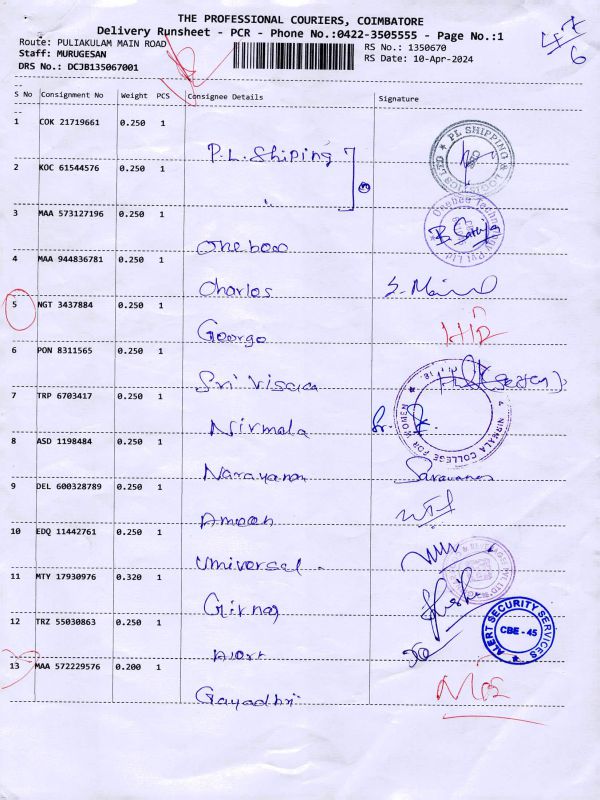 THE PROFESSIONAL COURIERS, COIMBATORE
Delivery Runsheet - PCR - Phone No.:0422-3505555 - Page No.:1
Route: PULIAKULAM MAIN ROAD
Staff: MURUGESAN
DRS No.: DCJB135067001
RS No.: 1350670
RS Date: 10-Apr-2024
6
S No Consignment No Weight PCS Consignee Details Signature
1 COK 21719661 0.250 1
P.L. Shiping
PL SHIPPING &
2 KOC 61544576 0.250 1
3 MAA 573127196 0.250 1
Onebee Technology Pvt Ltd
B. Sathya
Onebee
4 MAA 944836781 0.250 1
Charlos
5 NGT 3437884 0.250 1
Georgo
6 PON 8311565 0.250 1
7 TRP 6703417 0.250 1
Nirmala
NIRMALA COLLEGE FOR WOMEN
8 ASD 1198484 0.250 1
Narayanan
Saravanan
9 DEL 600328789 0.250 1
10 EDQ 11442761 0.250 1
Universal
11 MTY 17930976 0.320 1
Girnar
12 TRZ 55030863 0.250 1
Alert
ALERT SECURITY SERVICES
CBE - 45
13 MAA 572229576 0.200 1
Gayadhri